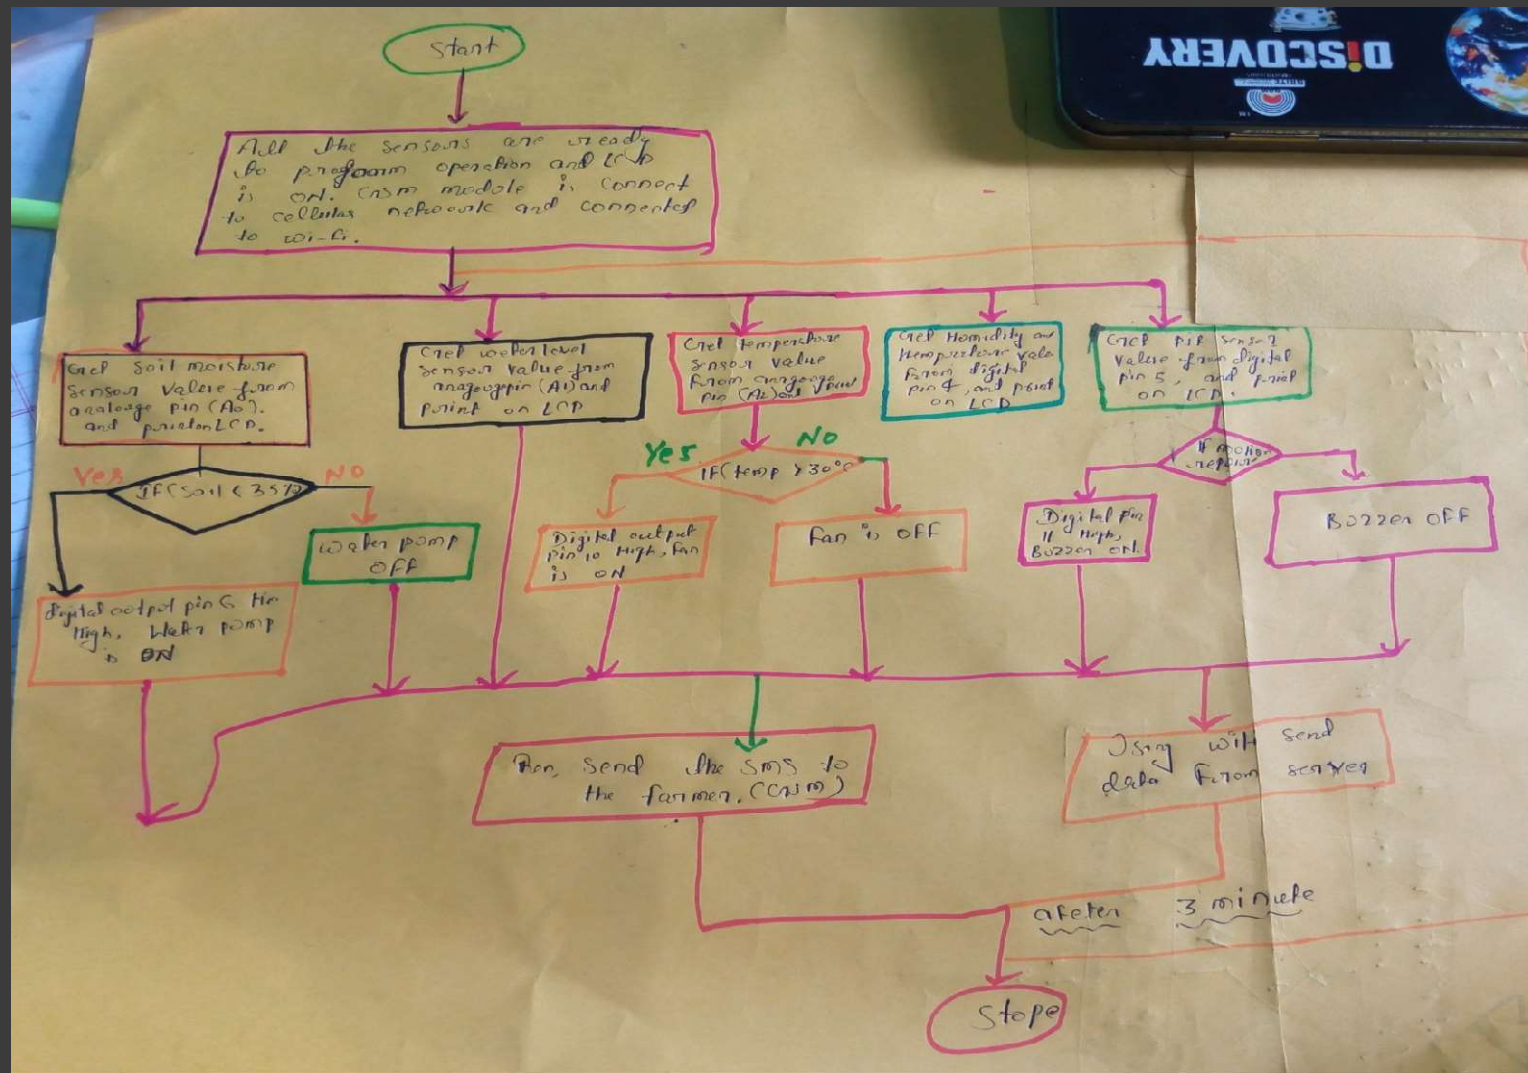 DiSCOVERY
Start
All the sensors are ready
to program operation and LCD
is ON. GSM module is connect
to cellular network and connected
to wi-fi.
Get Soil moisture
sensor value from
analouge pin (A0).
and print on LCD.
Get water level
sensor value from
anaougepin (A1) and
print on LCD
Get temperature
sensor value
from anaouge
pin (A2) and
Get Homidity and
from digital
pin 4, and print
on LCD
Get PIR sensor
value from digital
pin 5, and print
on LCD.
Yes
IF (soil < 35%)
No
Yes
No
IF (temp >30°c
If motion
Water pump
OFF
Digital output
pin 10 High, Fan
is ON
Fan is OFF
Digital pin
11 High,
Buzzer ON.
Buzzer OFF
digital output pin 6
High, Water pump
is ON
send the SMS to
the farmer. (GSM)
Using wifi send
data From server
afeter 3 minute
Stope